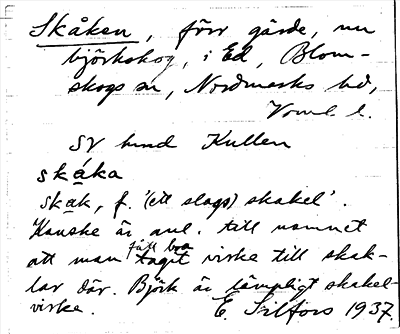 Skåken, förr gärde, nu
björkskog, i Ed, Blom-
skogs sn, Nordmarks hd,
Värml. l.
SV hund Kullen
skáka
skak, f. '(ett slags) skakel'.
Kanske är anl. till namnet
att man fått bra tagit virke till skak-
lar där. Björk är lämpligt skakel-
virke. E. Silfors 1937.